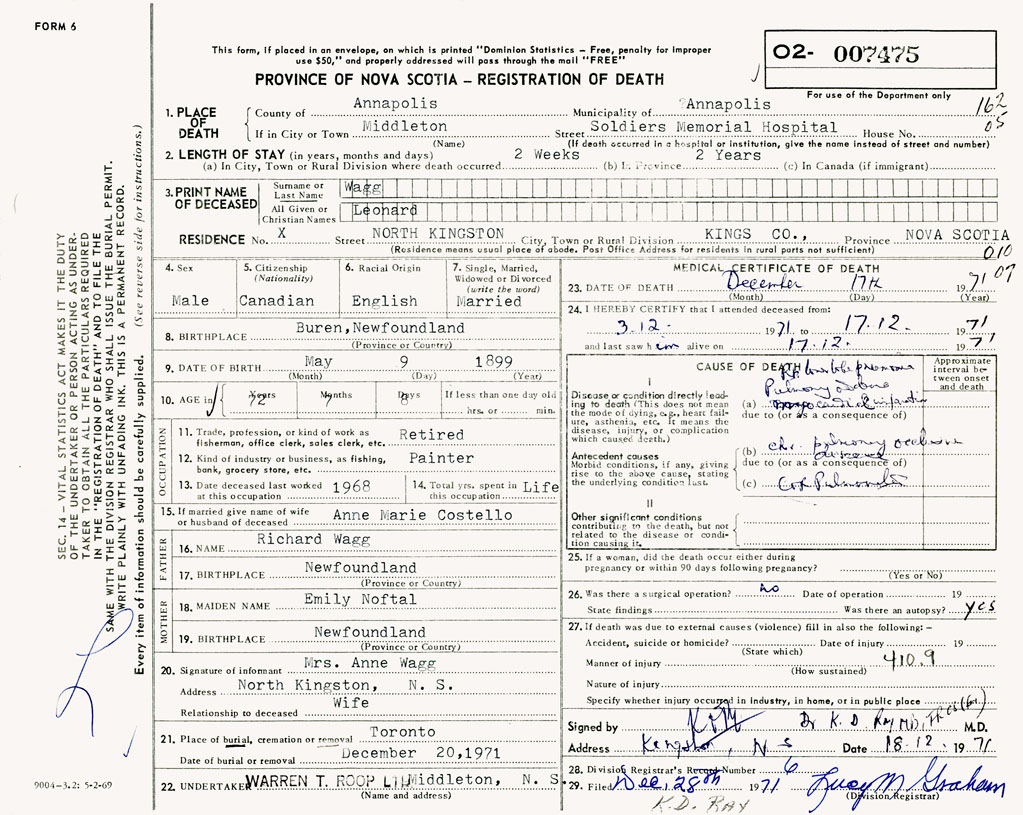 FORM 6
This form, if placed in an envelope, on which is printed "Dominion Statistics – Free, penalty for improper
use $50," and properly addressed will pass through the mail "FREE"
O2- 007475
PROVINCE OF NOVA SCOTIA – REGISTRATION OF DEATH
For use of the Department only
162
05
1. PLACE OF DEATH
County of Annapolis Municipality of Annapolis
If in City or Town Middleton Street Soldiers Memorial Hospital House No.
(Name) (If death occurred in a hospital or institution, give the name instead of street and number)
2. LENGTH OF STAY (in years, months and days) 2 Weeks 2 Years
(a) In City, Town or Rural Division where death occurred (b) In Province (c) In Canada (if immigrant)
3. PRINT NAME OF DECEASED
Surname or Last Name Wagg
All Given or Christian Names Leonard
RESIDENCE No. X Street NORTH KINGSTON City, Town or Rural Division KINGS CO., Province NOVA SCOTIA
(Residence means usual place of abode. Post Office Address for residents in rural parts not sufficient)
010
07
4. Sex Male
5. Citizenship (Nationality) Canadian
6. Racial Origin English
7. Single, Married, Widowed or Divorced (write the word) Married
8. BIRTHPLACE Buren, Newfoundland
(Province or Country)
9. DATE OF BIRTH May 9 1899
(Month) (Day) (Year)
10. AGE in Years 72 Months 7 Days 8 If less than one day old
hrs. or min.
OCCUPATION
11. Trade, profession, or kind of work as
fisherman, office clerk, sales clerk, etc. Retired
12. Kind of industry or business, as fishing,
bank, grocery store, etc. Painter
13. Date deceased last worked
at this occupation 1968
14. Total yrs. spent in
this occupation Life
15. If married give name of wife
or husband of deceased Anne Marie Costello
FATHER
16. NAME Richard Wagg
17. BIRTHPLACE Newfoundland
(Province or Country)
MOTHER
18. MAIDEN NAME Emily Noftal
19. BIRTHPLACE Newfoundland
(Province or Country)
20. Signature of informant Mrs. Anne Wagg
Address North Kingston, N. S.
Relationship to deceased Wife
21. Place of burial, cremation or removal Toronto
Date of burial or removal December 20,1971
22. UNDERTAKER WARREN T. ROOP LTD Middleton, N. S.
(Name and address)
MEDICAL CERTIFICATE OF DEATH
23. DATE OF DEATH December 17th 1971
(Month) (Day) (Year)
24. I HEREBY CERTIFY that I attended deceased from:
3.12. 1971 to 17.12. 1971,
and last saw him alive on 17.12. 1971
CAUSE OF DEATH
Approximate interval between onset and death
I
Disease or condition directly leading
to death (This does not mean
the mode of dying, e.g., heart failure,
asthenia, etc. It means the
disease, injury, or complication
which caused death.)
Pulmonary
(a) myocardial infarction
due to (or as a consequence of)
Antecedent causes
Morbid conditions, if any, giving
rise to the above cause, stating
the underlying condition last.
(b) chr. pulmonary
disease
due to (or as a consequence of)
(c) Cor Pulmonale
II
Other significant conditions
contributing to the death, but not
related to the disease or condition
causing it.
25. If a woman, did the death occur either during
pregnancy or within 90 days following pregnancy?
(Yes or No)
26. Was there a surgical operation? no Date of operation 19
State findings Was there an autopsy? yes
27. If death was due to external causes (violence) fill in also the following: –
Accident, suicide or homicide? Date of injury 19
(State which)
Manner of injury 410.9
(How sustained)
Nature of injury
Specify whether injury occurred in industry, in home, or in public place
Signed by Dr K. D. Ray MD, M.D.
Address Kingston, N S Date 18.12. 1971
28. Division Registrar's Record Number 6
29. Filed Dec, 28th 1971 Lucy M Graham
(Division Registrar)
K.D. RAY
SEC. 14 – VITAL STATISTICS ACT MAKES IT THE DUTY
OF THE UNDERTAKER OR PERSON ACTING AS UNDERTAKER
TO OBTAIN ALL THE PARTICULARS REQUIRED
IN THE "REGISTRATION OF DEATH" AND TO FILE THE
SAME WITH THE DIVISION REGISTRAR WHO SHALL ISSUE THE BURIAL PERMIT.
WRITE PLAINLY WITH UNFADING INK. THIS IS A PERMANENT RECORD.
Every item of information should be carefully supplied. (See reverse side for instructions.)
9004-3.2: 5-2-69